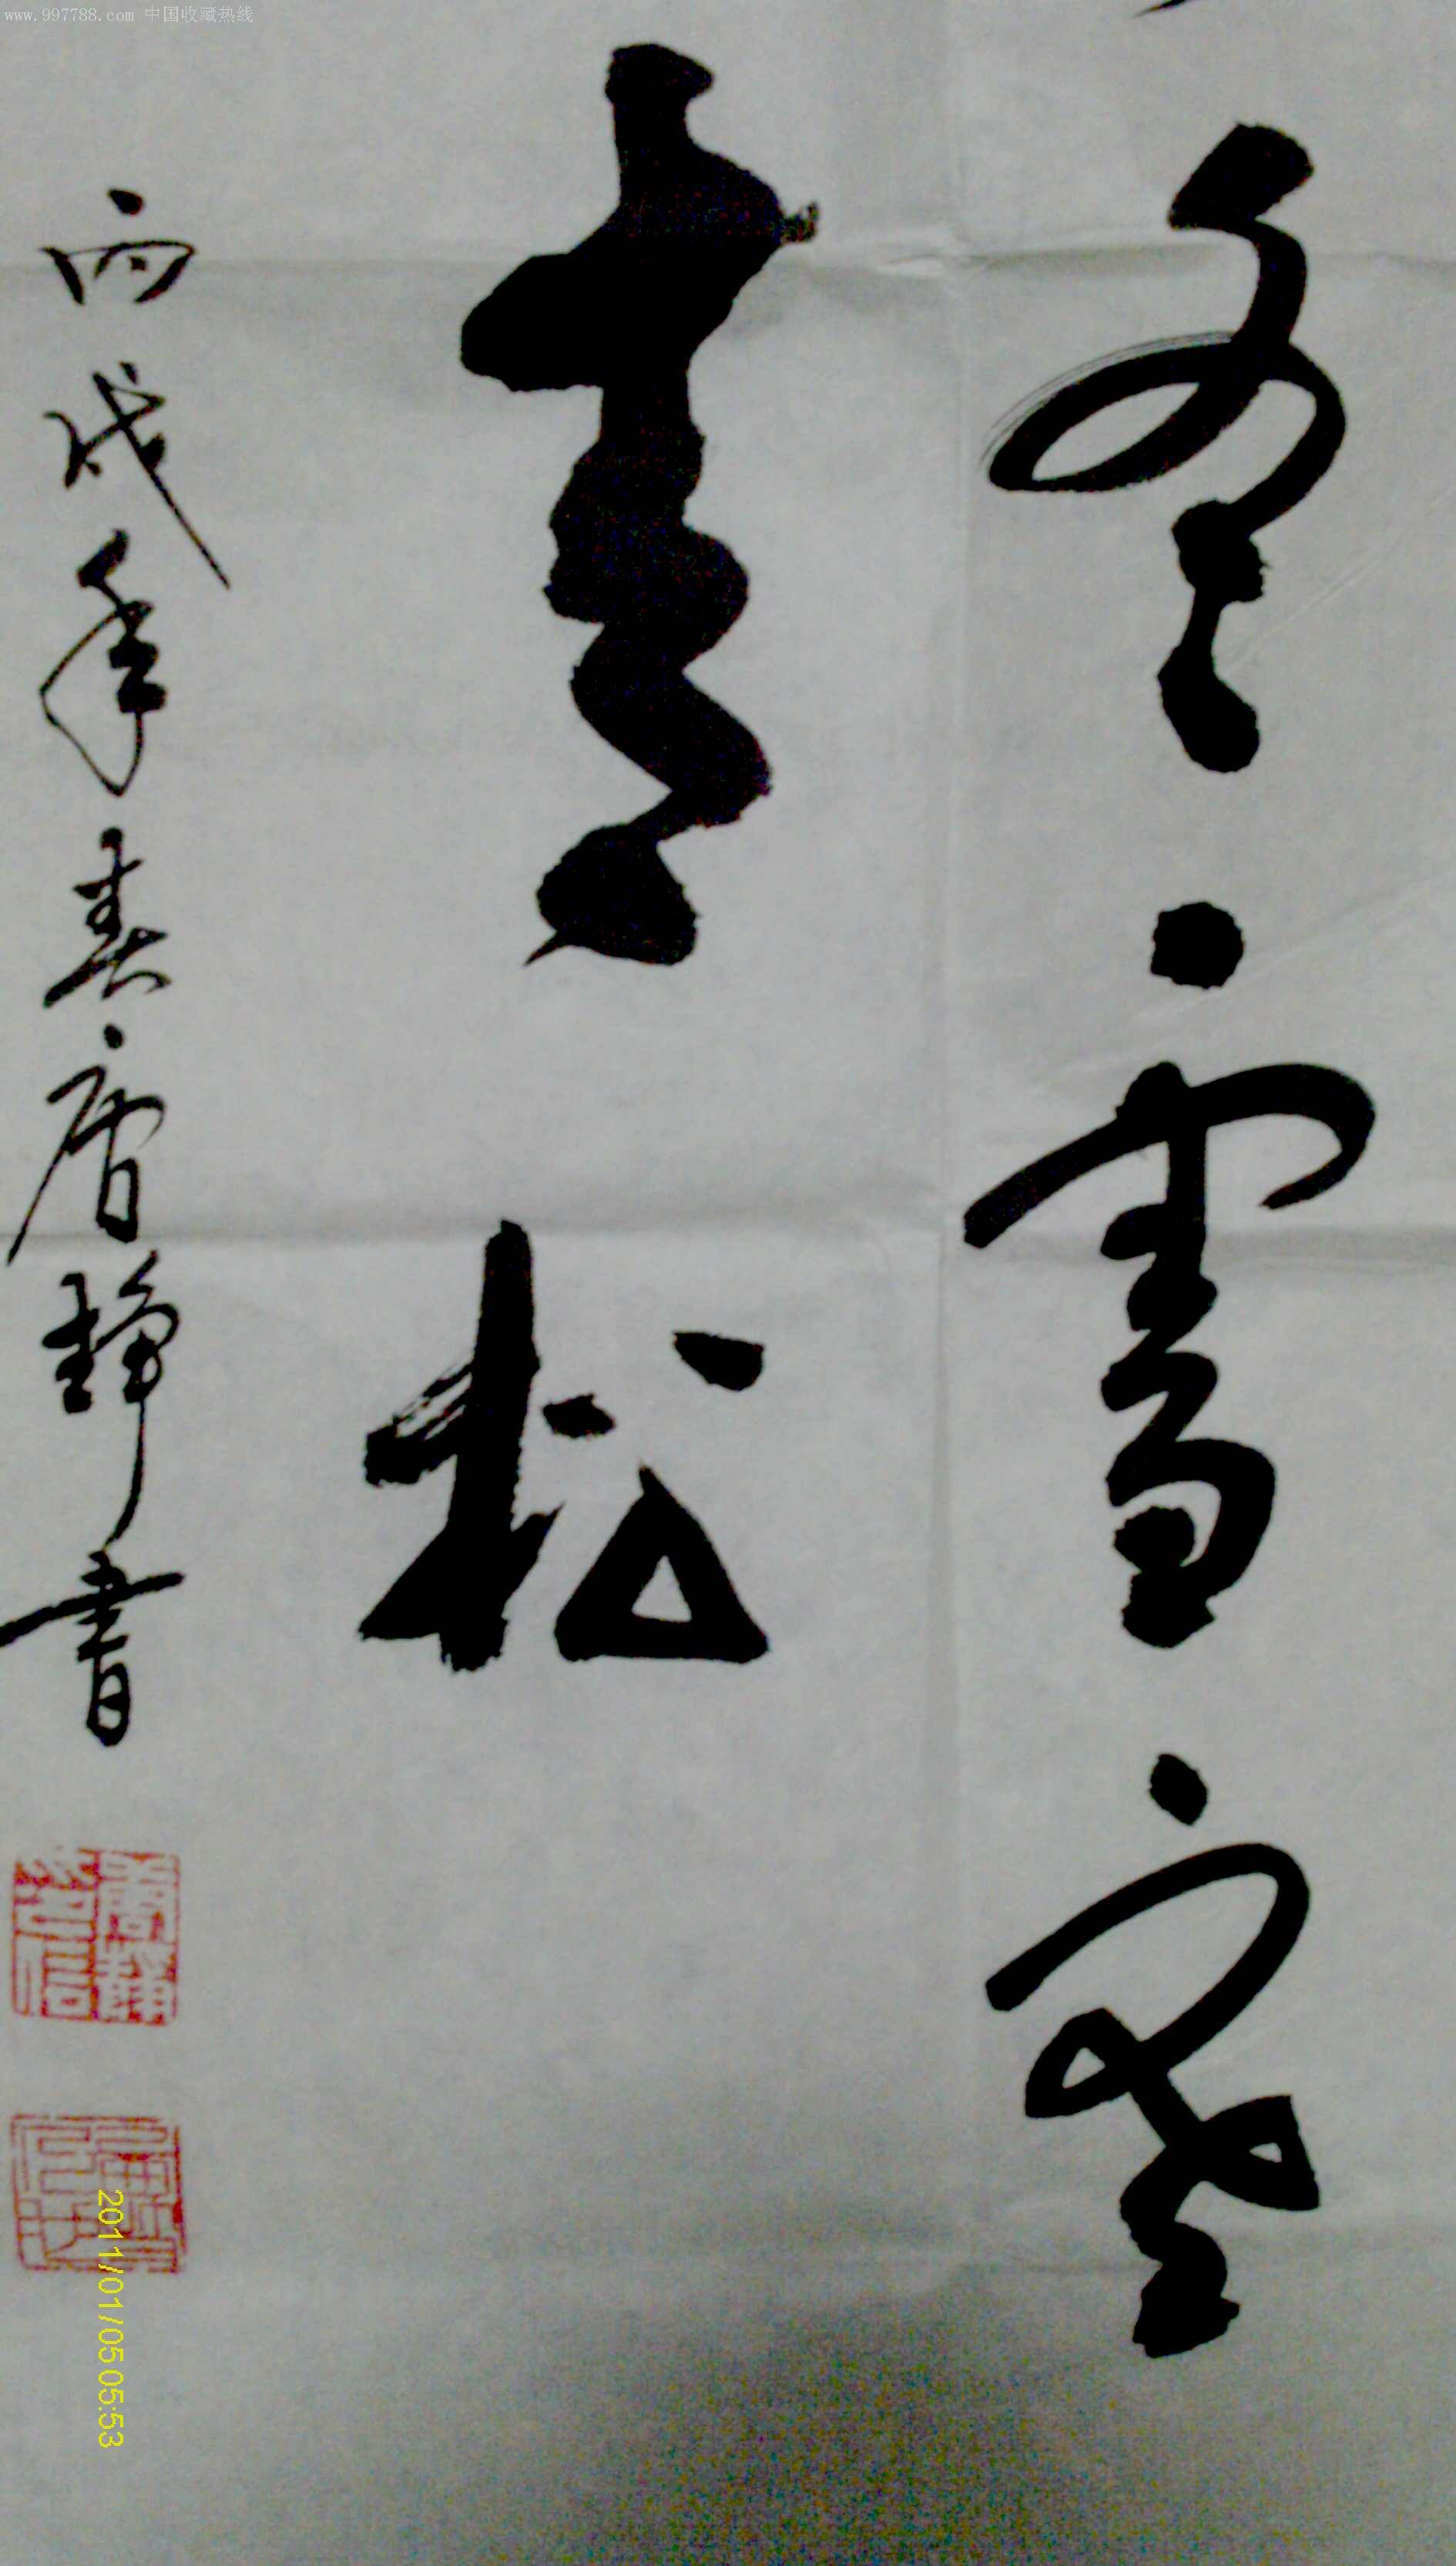 冬雪密
青松
丙戌年春唐静书
www.997788.com 中国收藏热线
2011/01/05 05:53